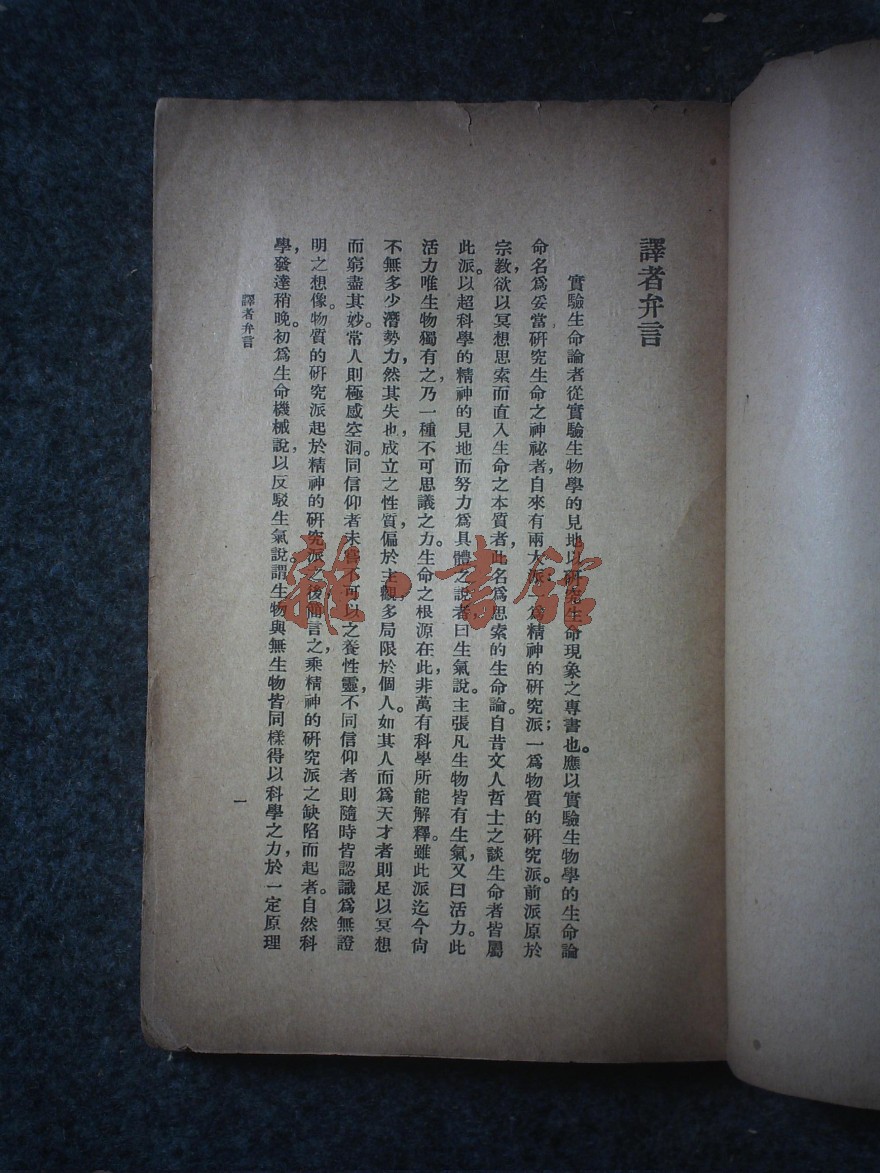 譯者弁言
實驗生命論者從實驗生物學的見地以研究生命現象之專書也。應以實驗生物學的生命論
命名爲妥當研究生命之神祕者,自來有兩大派;一爲精神的研究派;一爲物質的研究派。前派原於
宗教,欲以冥想思索而直入生命之本質者,此名爲思索的生命論。自昔文人哲士之談生命者皆屬
此派。以超科學的精神的見地而努力爲具體之說者,曰生氣說。主張凡生物皆有生氣,又曰活力。此
活力唯生物獨有之,乃一種不可思議之力。生命之根源在此,非萬有科學所能解釋。雖此派迄今尙
不無多少潛勢力,然其失也,成立之性質,偏於主觀,多局限於個人。如其人而爲天才者則足以冥想
而窮盡其妙。常人則極感空洞。同信仰者未嘗不可以之養性靈,不同信仰者則隨時皆認識爲無證
明之想像。物質的研究派起於精神的研究派之後,簡言之,乘精神的研究派之缺陷而起者。自然科
學,發達稍晚。初爲生命機械說,以反駁生氣說。謂生物與無生物皆同樣得以科學之力,於一定原理
譯者弁言
一
雜·書館